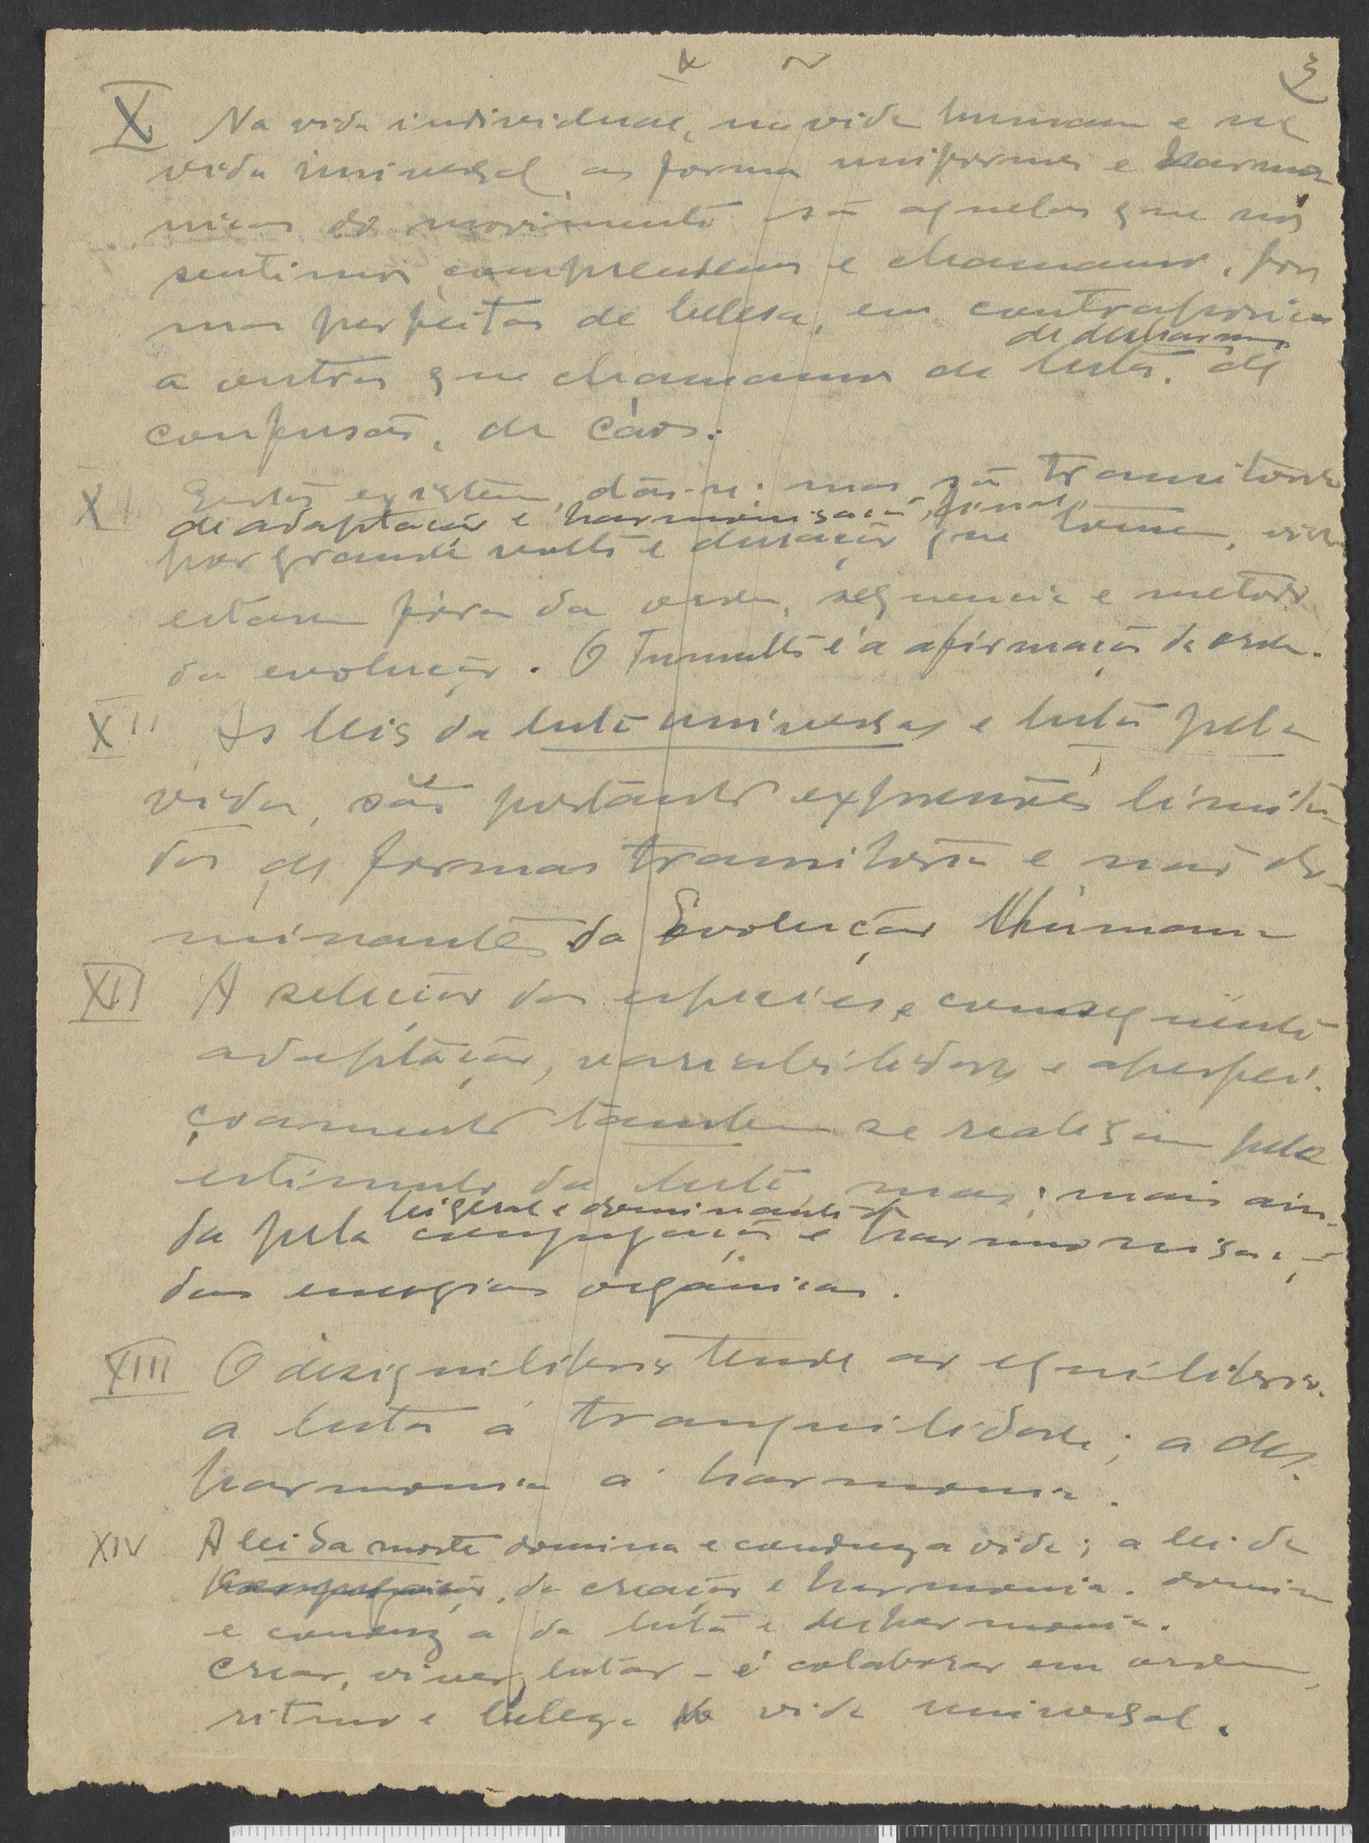 3
X Na vida individual, na vida humana e na
vida universal, as formas uniformes e harmo
nicas do movimento são aquelas que nós
sentimos, comprendemos e chamamos, for
mas perfeitas de belesa, em contraposição
de desharmonia
a outras que chamamos de luta, de
confusão, de cáos.
XI Estas existem, dão-se; mas são transitorias
de adaptação e harmonisação final,
por grande vulto e duração que tomem,
estarem fóra da ordem, sequencia e metodo
da evolução. O Tumulto é a afirmação da ordem.
XII As leis da luta universal e luta pela
vida, são portanto expressões limita
das de formas transitorias e não do-
minantes da Evolução Humana
XII A seleccção das especies, e consequente
adaptação, variabilidade e aperfei-
çoamento tambem se realisam pelo
estimulo da luta, mas; mais ain-
lei geral e dominante da
da pela conjugação e harmonisação
das energias orgánicas.
XIII O desiquilibrio tende ao equilibrio.
a luta á tranquilidade; a des-
harmonia á harmonia.
XIV A lei da morte domina e conduz a vida; a lei da
da creação e harmonia. domina
e conduz a da luta e desharmonia.
Crear, viver, lutar - é colaborar em ordem,
ritmo e beleza na vida universal.